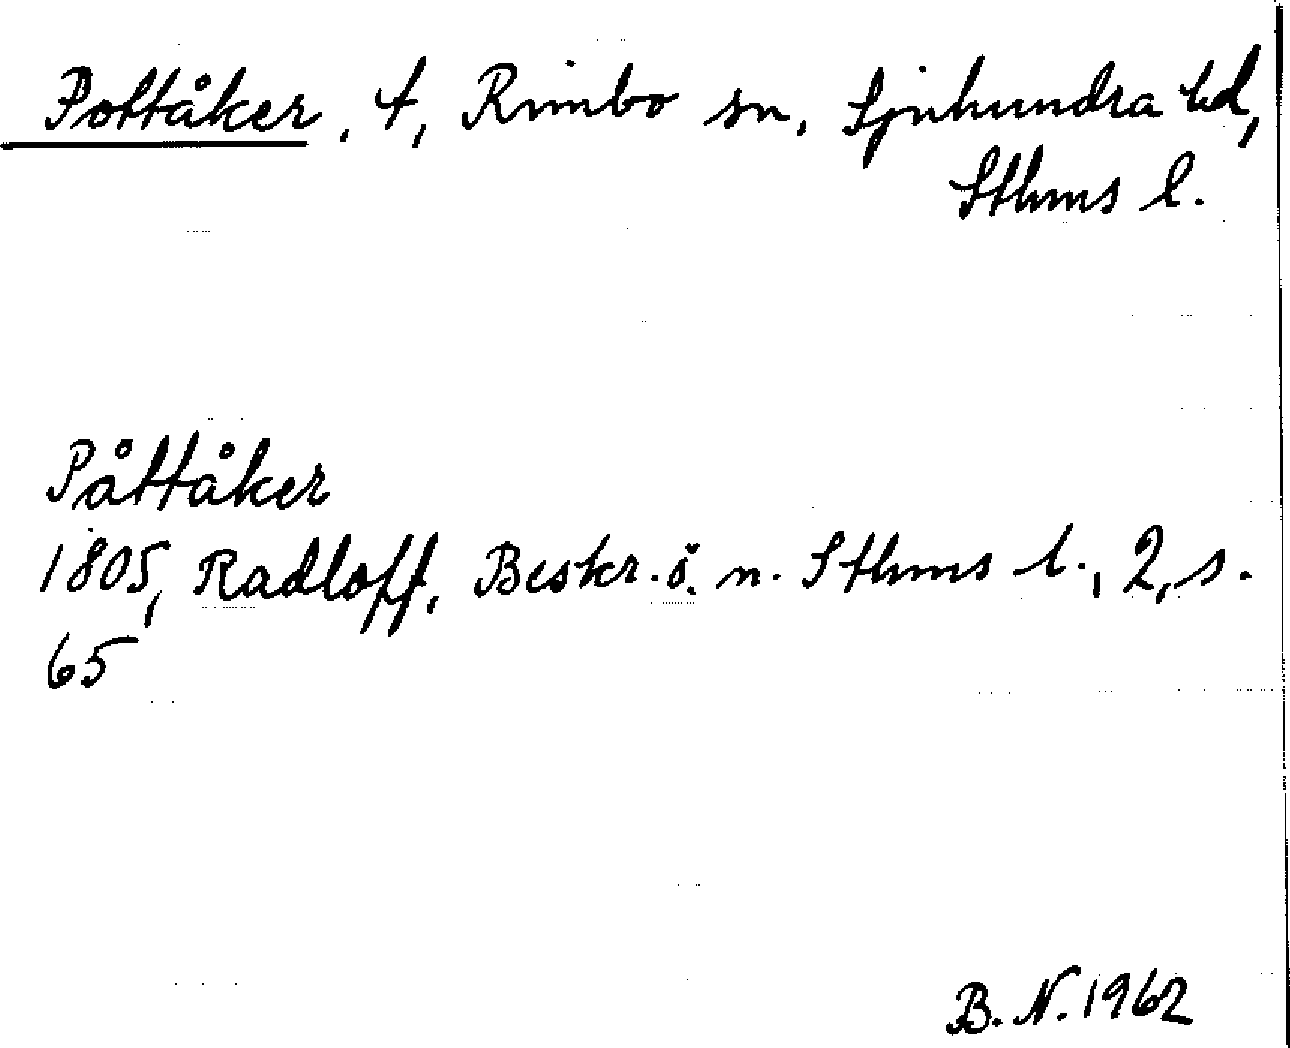 Pottåker, t, Rimbo sn, Sjuhundra hd,
Sthms l.
Påttåker
1805, Radloff, Beskr. ö. n. Sthms l., 2, s.
65
B. N. 1962